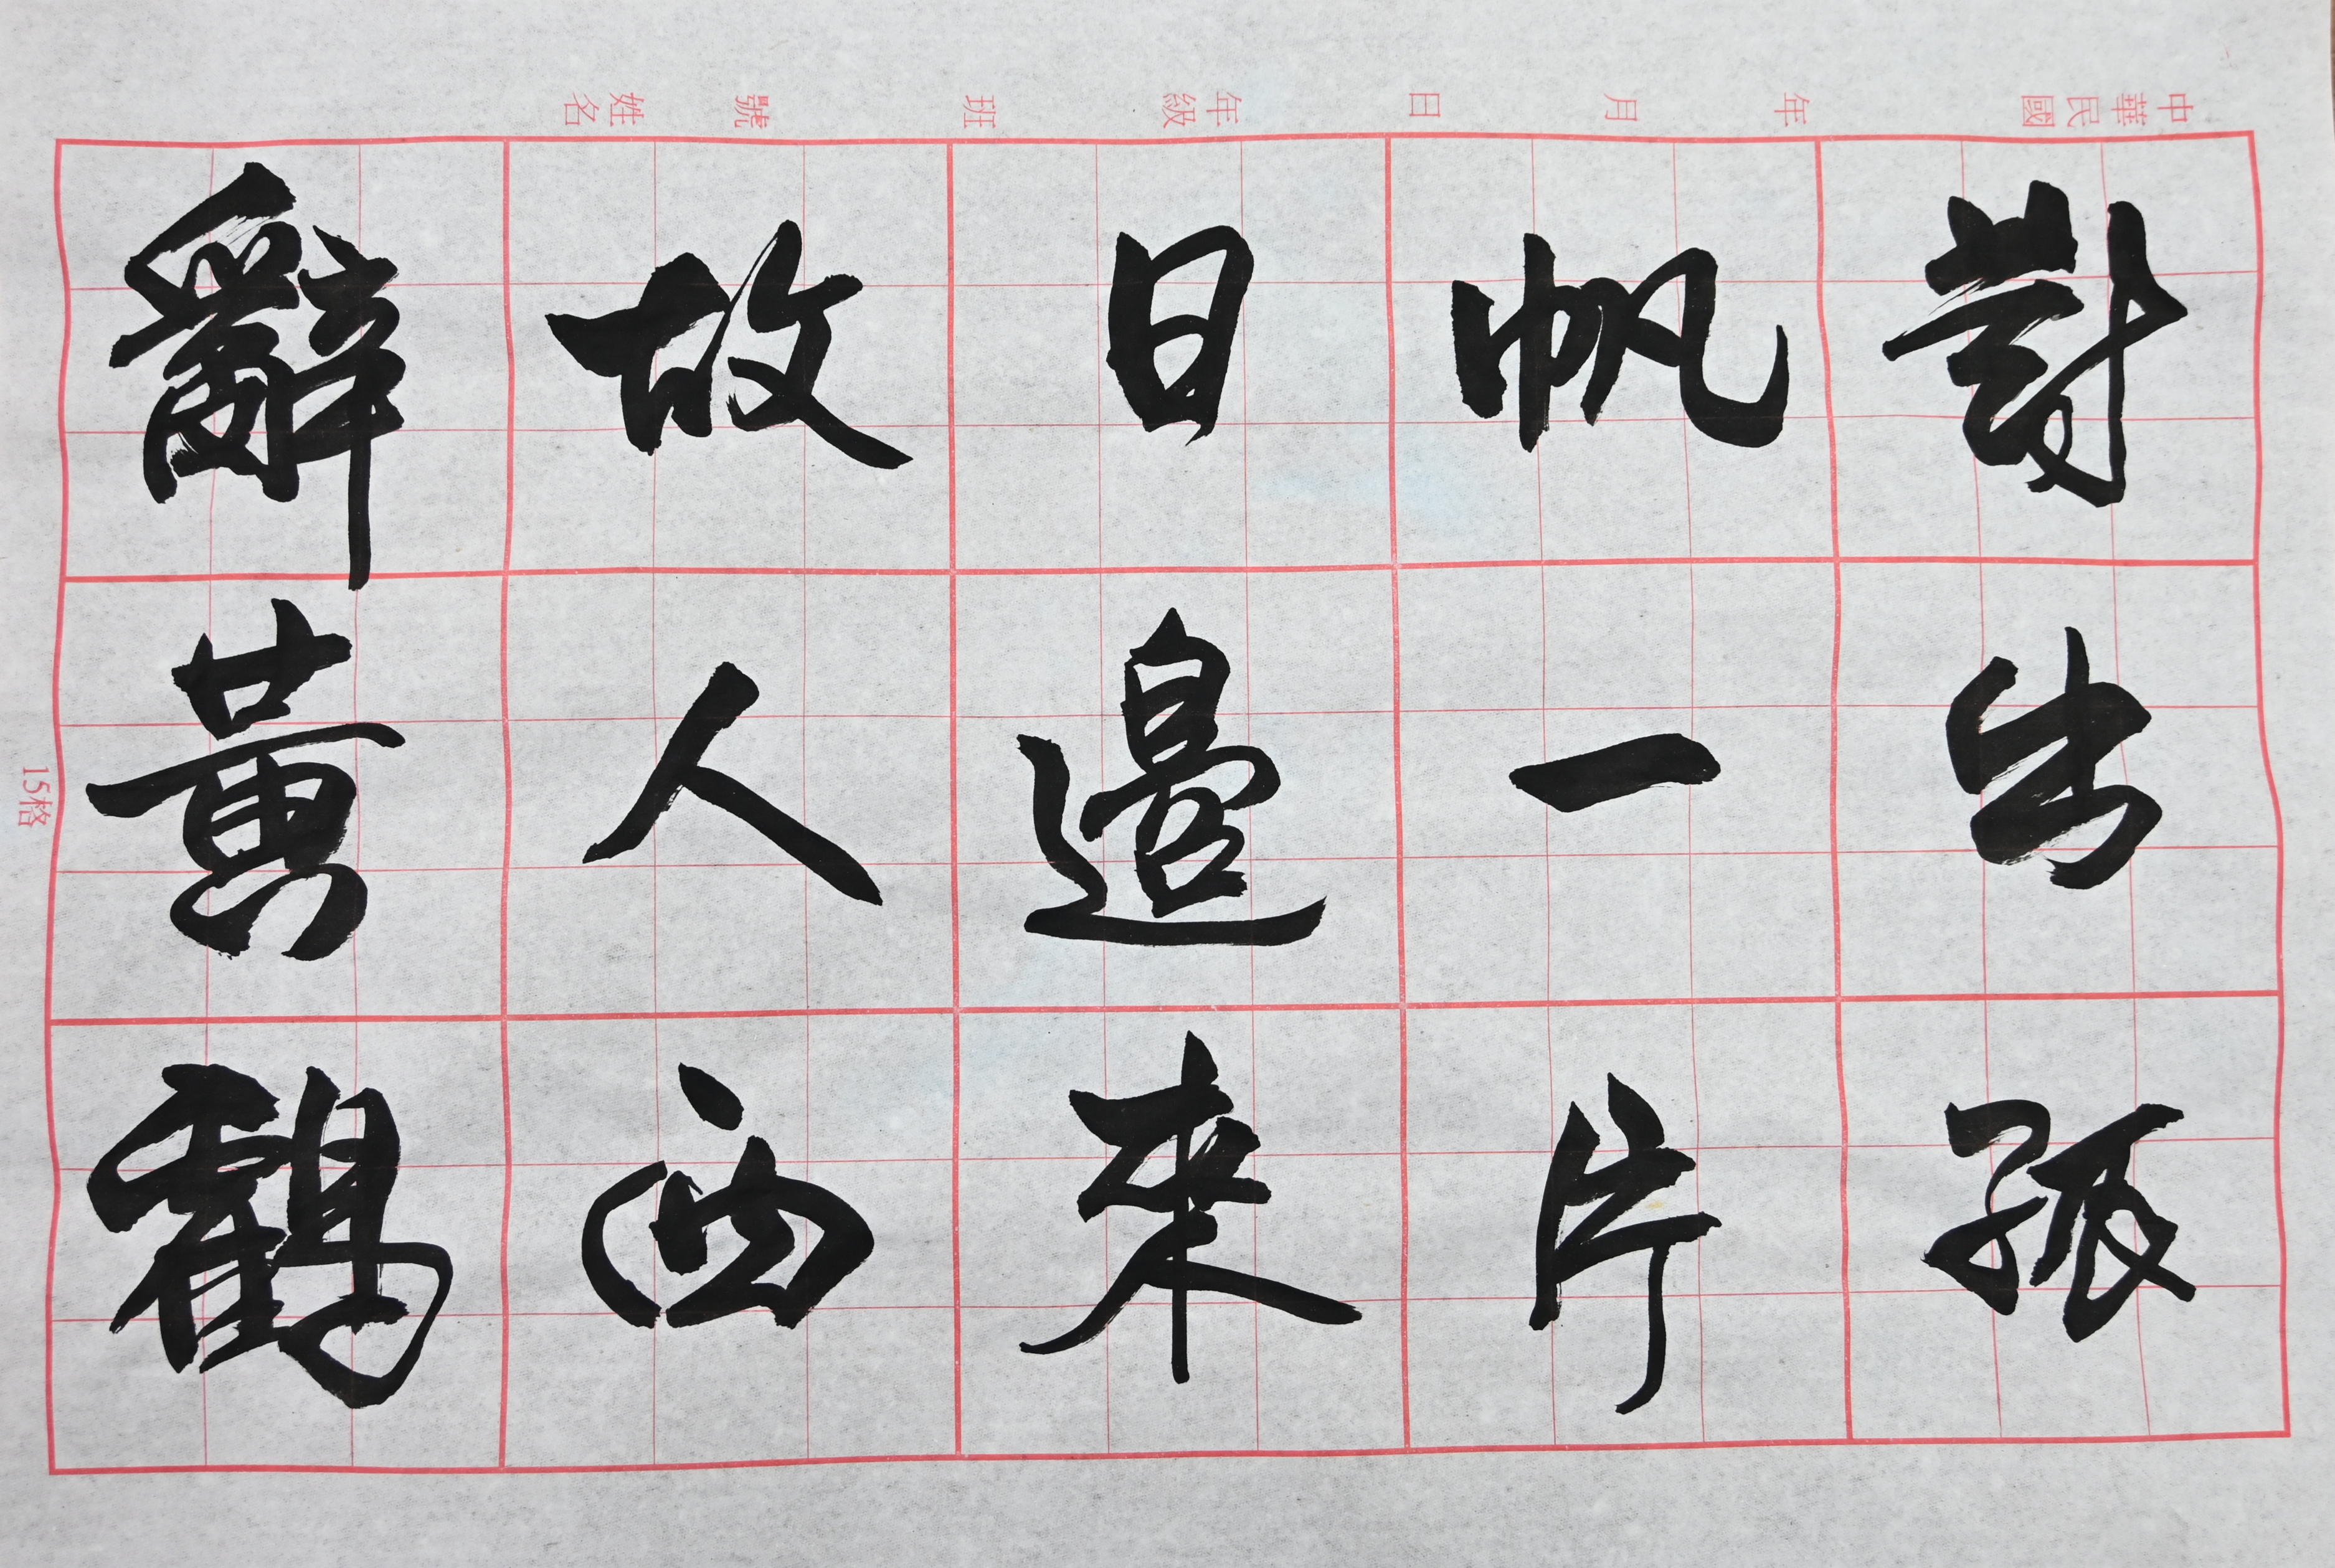 對出孤
帆一片
日邊來
故人西
辭黃鶴
中華民國 年 月 日 年級 班 號 姓名
15格